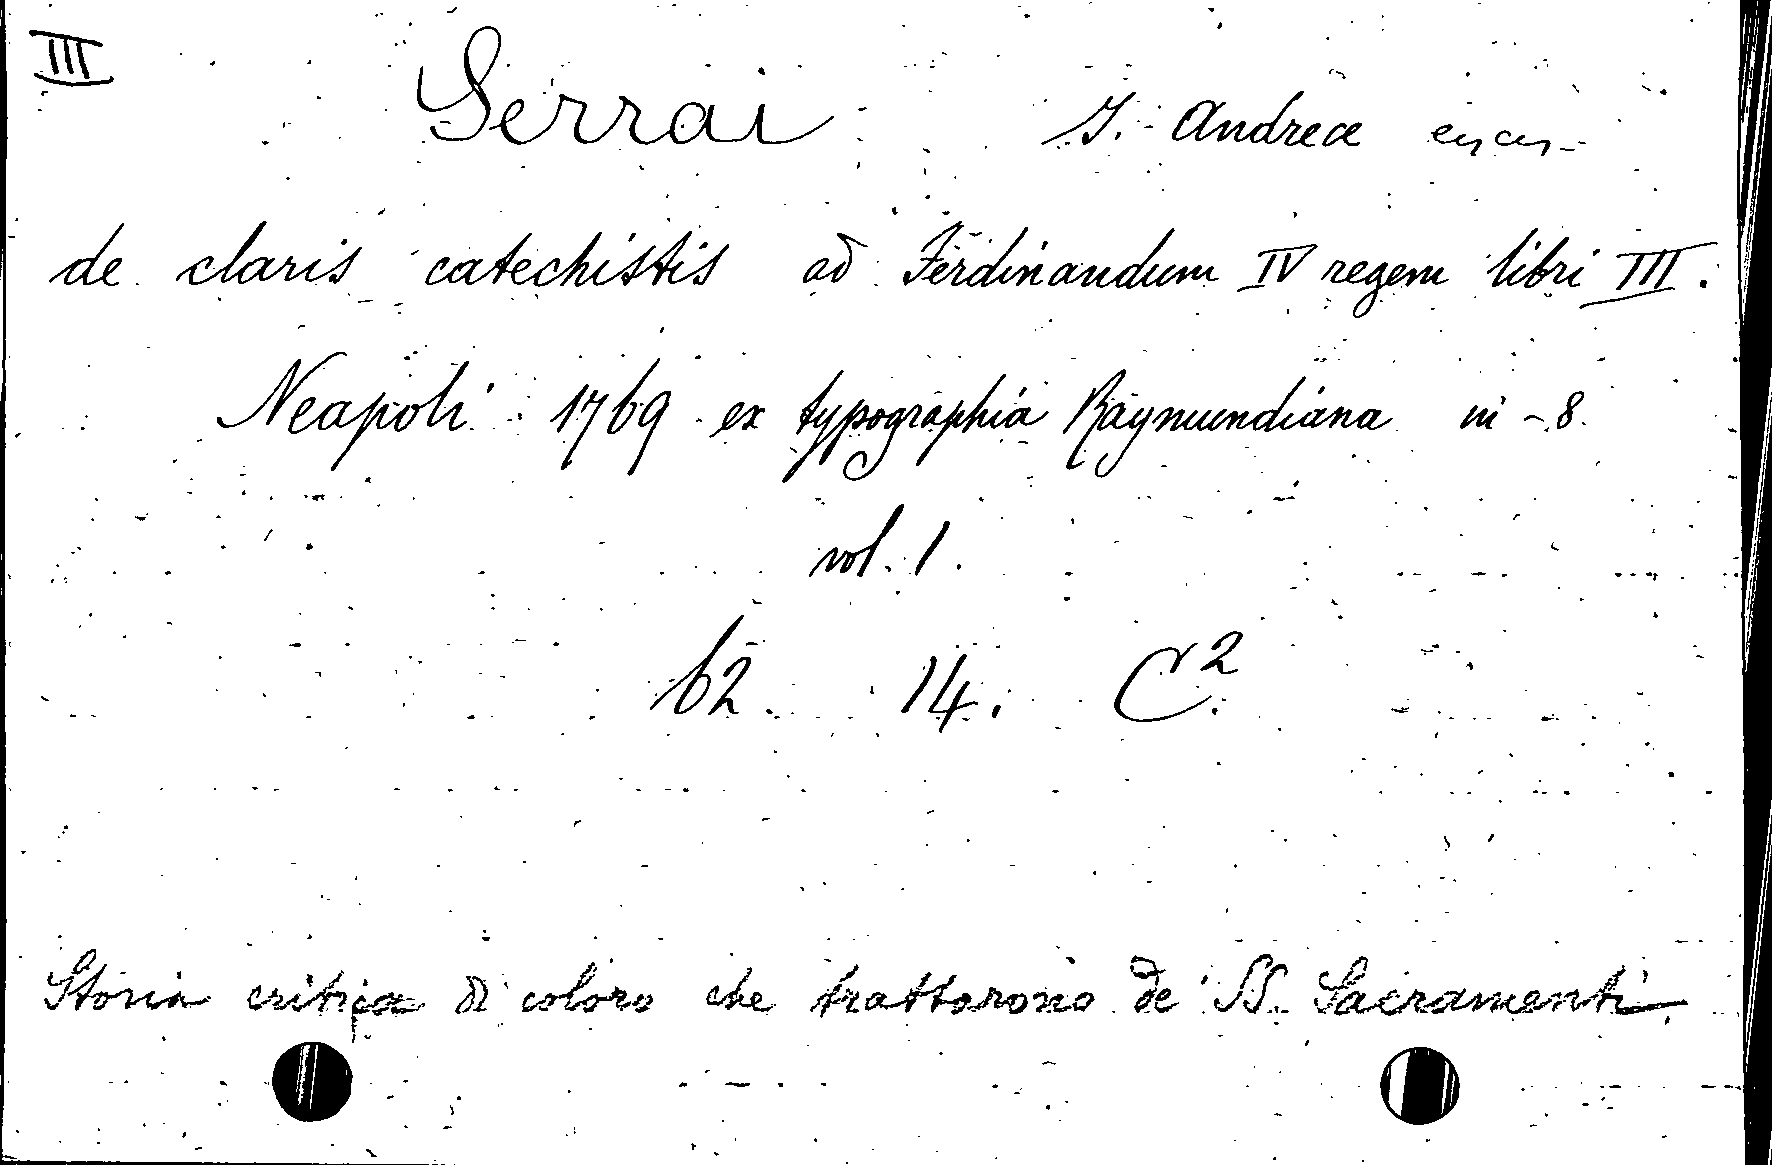 III
Serrai J. Andreæ
de claris catechistis ad Ferdinandum IV regem libri III.
Neapoli 1769 ex typographia Raymundiana in-8.
vol. 1.
62. 14. C².
Storia critica di coloro che trattarono de' SS. Sacramenti.